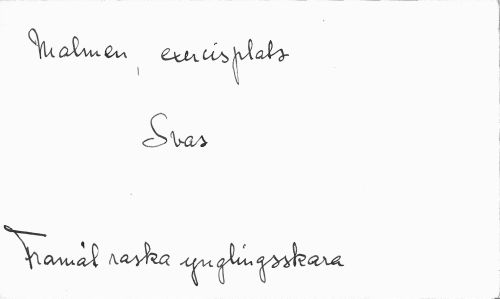 Malmen, exercisplats
Svas
Framåt raska ynglingsskara